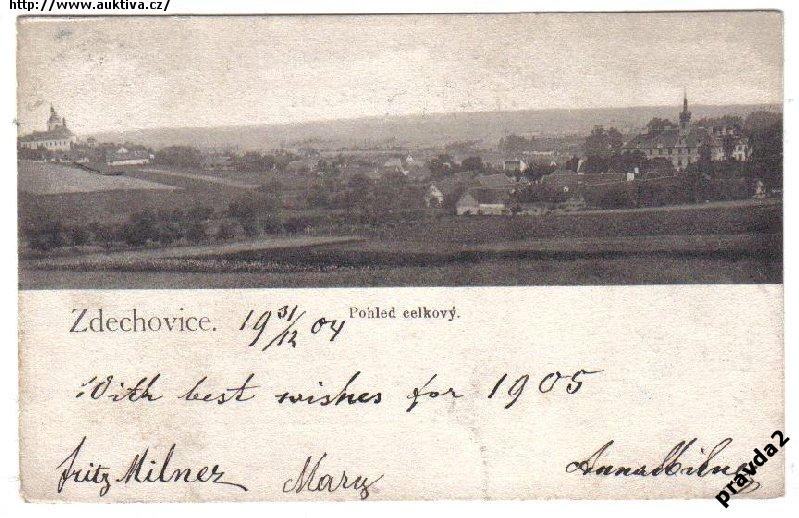 http://www.auktiva.cz/
Zdechovice. 19 31/12 04 Pohled celkový.
With best wishes for 1905
Fritz Milner Mary Anna Milner
pravda2